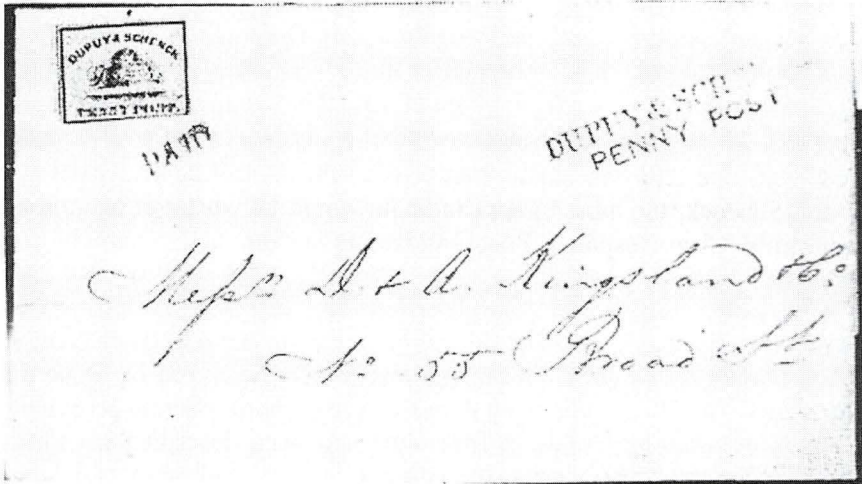 DUPUY & SCHENCK
PENNY POST
PAID
DUPUY & SCH
PENNY POST
Messrs D & A. Kingsland & Co
No 55 Broad St